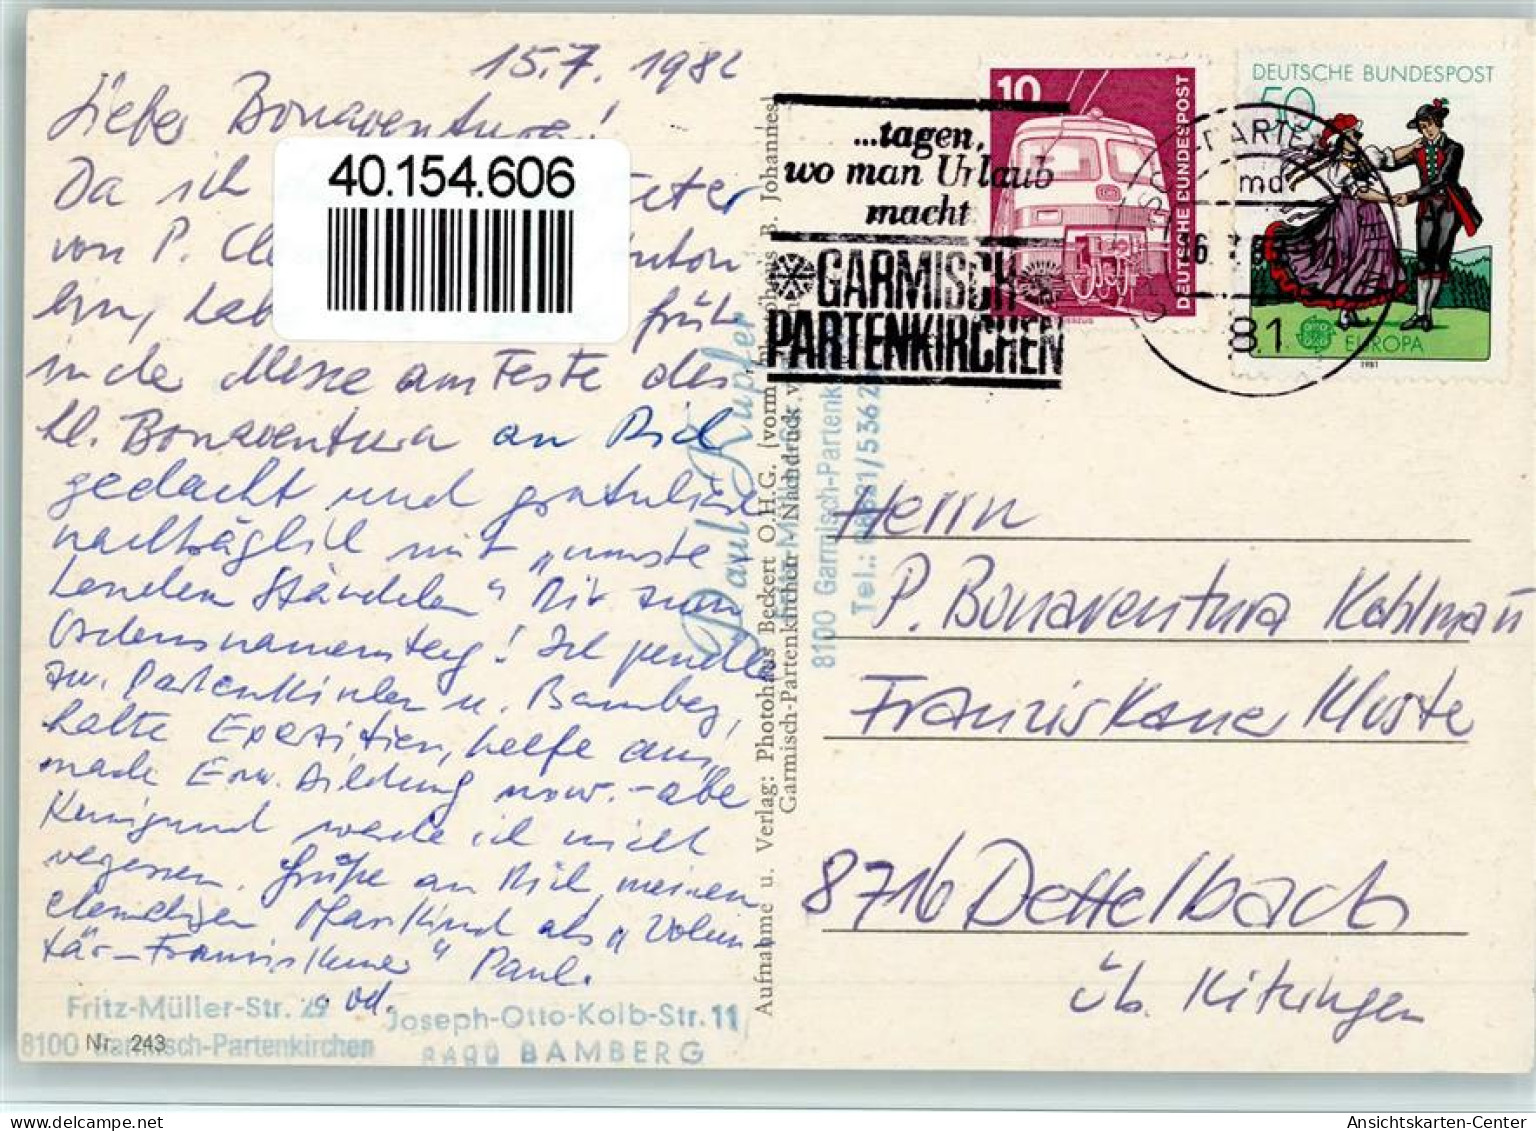 15.7.1982
Lieber Bonaventura!
Da ich
von P. Cle
bin, hab früh
in der Messe am Feste des
hl. Bonaventura an Dich
gedacht und gratuliere
nachträglich mit „umste-
henden Ständchen" Dir zum
Ordensnamenstag! Ich pendle
zw. Partenkirchen u. Bamberg,
halte Exerzitien, helfe aus,
mache Erw. Bildung usw. - aber
Kunigund werde ich nicht
vergessen. Grüße an Dich, meinen
ehemaligen Pfarrkind als „Volun
tär-Franziskaner" Paul.
od.
Fritz-Müller-Str.
8100 Garmisch-Partenkirchen
Nr. 243
Joseph-Otto-Kolb-Str. 11
BAMBERG
40.154.606
Paul Kupfer
Fritz-Müller-Str.
8100 Garmisch-Partenk
Tel.: 08821/5362
Aufnahme u. Verlag: Photohaus Beckert O.H.G. (vorm. Photohaus B. Johannes)
Garmisch-Partenkirchen Nachdruck v
...tagen,
wo man Urlaub
macht
GARMISCH
PARTENKIRCHEN
10
DEUTSCHE BUNDESPOST
DEUTSCHE BUNDESPOST
50
EUROPA
1981
md
81
Herrn
P. Bonaventura Kohlmann
Franziskaner Kloster
8716 Dettelbach
üb. Kitzingen
Ansichtskarten-Center